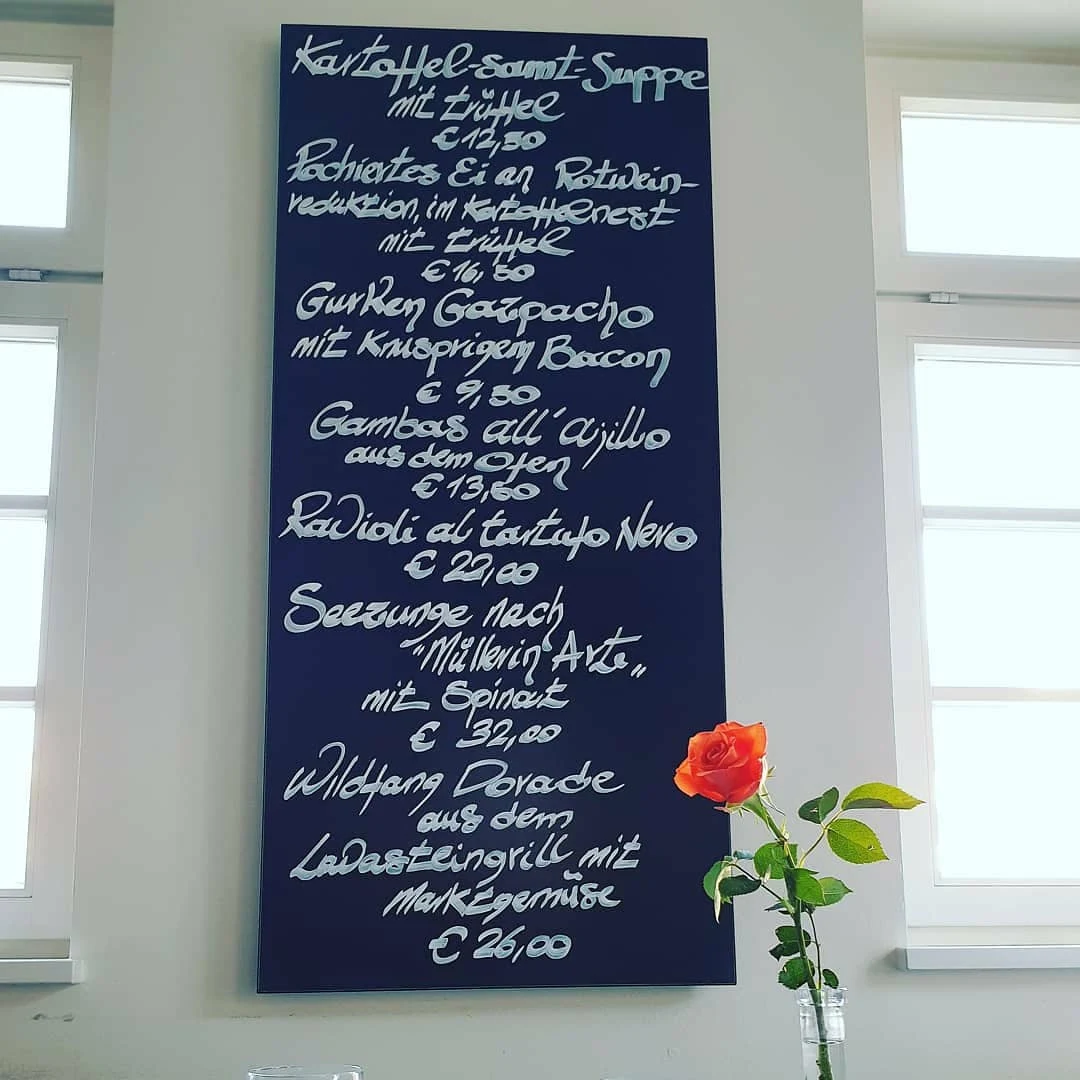 Kartoffel-samt-Suppe
mit trüffel
€ 12,50
Pochiertes Ei an Rotwein-
reduktion, im Kartoffelnest
mit trüffel
€ 16,50
Gurken Gazpacho
mit Knusprigem Bacon
€ 9,50
Gambas all´ajillo
aus dem Ofen
€ 13,50
Ravioli al tartufo Nero
€ 22,00
Seezunge nach
"Müllerin Arte„
mit Spinat
€ 32,00
Wildfang Dorade
aus dem
Lavasteingrill mit
Marktgemüse
€ 26,00